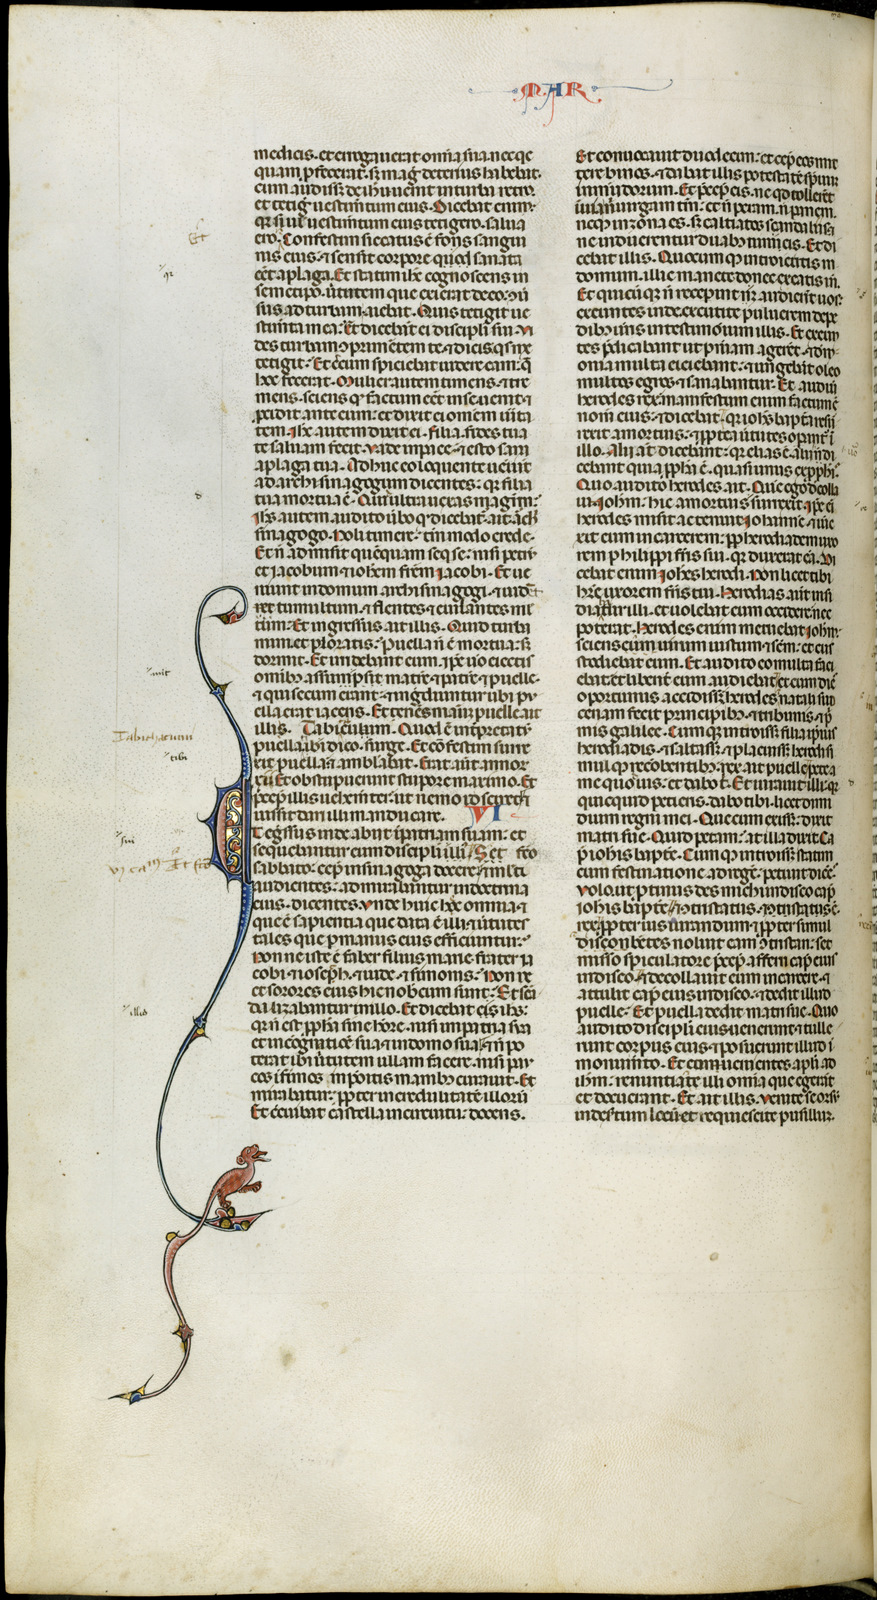 MAR
medicis. et erogauerat omnia sua nec qc
quam pfecerat. s; mag detenus habebat.
cum audiss; de ihu uenit in turba retro.
et tetig uestimtum eius. Dicebat enim.
qr si ul uestimtum eius tetigero. salua
ero. Confestim siccatus e fons sangui
nis eius. 7 sensit corpore quod sanata
eet a plaga. Et statim ihc cognoscens in
semetipo. uirtutem que exierat de eo. 9uer
sus ad turbam aiebat. Quis tetigit ue
stimta mea. Et dicebant ei discipli sui. Vi
des turbam 9primentem te. 7 dicis qs me
tetigit. Et circum spiciebat uidere eam. q
hoc fecerat. Mulier autem timens. 7 tre
mens. sciens qd factum eet in se. uenit. 7
pcidit ante eum. et dixit ei omem uita
tem. Ihc autem dixit ei. Filia. fides tua
te saluam fecit. Vade in pace. 7 esto sana
a plaga tua. Adhuc eo loquente ueniunt
ad archisinagogum dicentes. qr filia
tua mortua e. Quid ultra uexas magrm.
Ihs autem audito ubo qd dicebat. ait archi
sinagogo. Noli timere. tm modo crede.
Et n admisit quequam seq se. nisi petrum
et iacobum. 7 iohem frem iacobi. Et ue
niunt in domum archisinagogi. 7 uidet
tumultum. 7 flentes 7 eiulantes mul
tum. Et ingressus ait illis. Quid turba
mini. et ploratis. Puella n e mortua. s;
dormit. Et irridebant eum. Ipe uo eiectis
omib; assumpsit matre. 7 patre 7 puelle.
7 qui secum erant. 7 ingdiuntur ubi pu
ella erat iacens. Et tenes manu puelle ait
illis. Tabitacum. Quod e intpretatu
puella tibi dico. surge. Et cofestim surre
xit puella. 7 amblabat. Erat aut annor
xii. Et obstupuerunt stupore maximo. Et
pcepit illis uehem ter. ut nemo id sciret.
iussit dari illi manducare. VI
Et egssus inde abiit i patriam suam. et
sequebantur eum discipuli illi. Et fco
sabbato. cep in sinagoga docere. 7 multi
audientes. admirabantur in doctrina
eius. dicentes. Unde huic hec omnia. 7
que e sapientia que data e illi. 7 uirtutes
tales que p manus eius efficiuntur.
Nonne iste e faber filius marie. frater ia
cobi 7 ioseph. 7 iude. 7 simonis. Nonne
et sorores eius hic nobcum sunt. Et scan
dalizabantur in illo. Et dicebat eis ihs.
qr n est ppha sine honore. nisi in patria sua
et in cognatioe sua. 7 in domo sua. 7 n po
terat ibi uirtutem ullam facere. nisi pau
cos ifirmos impoitis manib; curauit. Et
mirabatur. ppter incredulitate illoru
Et circuibat castella in circuitu. docens.
Et conuocauit duodecim. et cep eos mit
tere binos. 7 dabat illis potestate spiritum
inmundorum. Et pcep eis. ne qd tollerent
in uia n uirgam tm. et n peram. n panem.
neq; in zona es. s; calciatos scandaliis.
ne induerentur duab; tunicis. Et di
cebat illis. Quocumq; introieritis in
domum. illic manete donec exeatis in.
Et quicuq; n recepint nec audierit uos.
exeuntes inde. excutite puluerem de pe
dib; uris in testimonium illis. Et exeun
tes pdicabant ut pniam ageret. 7 dem
onia multa eiciebant. 7 ungebat oleo
multos egros 7 sanabantur. Et audiu
herodes rex. manifestum enim factum e
nom eius. 7 dicebat. qr iohs bapta resur
rexit a mortuis. 7 ppterea uirtutes opant i
illo. Alii at dicebant. qr elias e. alii di
cebant quia ppha e. quasi unus ex pphis.
Quo audito herodes ait. Que ego decolla
ui iohm. hic a mortuis surrexit. Ipe ei
herodes misit ac tenuit iohanne. 7 uic
xit eum in carcerem. pp herodiadem uxo
rem philippi fris sui. qr duxerat ea. Di
cebat enim iohes herodi. Non licet tibi
hre uxorem fris tui. Herodias aut insi
diabatur illi. et uolebat eum occidere. nec
poterat. Herodes enim metuebat iohm.
sciens eum uirum iustum. 7 scm. et cus
todiebat eum. Et audito eo multa faci
ebat. et libent eum audiebat. et cum die
oportunus accidiss; herodes natali suo
cenam fecit principib;. 7 tribunis. 7 p
mis galilee. Cumq; introiss; filia ipius
herodiadis. 7 saltass;. 7 placuiss; herodi si
mulq; recobentib;. rex ait puelle. pete a
me quod uis. et dabo t. Et iurauit illi. qr
quicquid petieris. dabo tibi. licet dimi
dium regni mei. Que cum exiss;. dixit
matri sue. Quid petam. at illa dixit. Ca
p iohis bapte. Cumq; introiss; statim
cum festinatione ad rege. petiuit dice.
Volo. ut ptinus des michi in disco cap
iohis bapte. 7 9tristatus.
rex. ppter ius iurandum. 7 ppter simul
discombetes noluit eam 9tristari. set
misso spiculatore pcep afferri cap eius
in disco. 7 decollauit eum in carcere. 7
attulit cap eius in disco. 7 dedit illud
puelle. Et puella dedit matri sue. Quo
audito discipli eius uenerunt. 7 tule
runt corpus eius. 7 posuerunt illud i
monumto. Et conuenientes apli ad
ihm. renuntiaverunt illi omia que egerat
et docuerant. Et ait illis. Venite seorsu
in destum locu. et requiescite pusillum.
Et
qr
mit
Tabithacum
tibi
sui
VI cam Et fco
illis